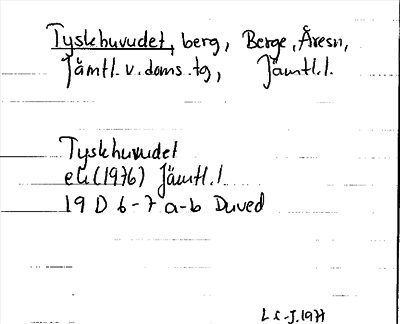 Tyskhuvudet, berg, Berge, Åresn,
Jämtl. v. doms. tg, Jämtl. l.
Tyskhuvudet
ek (1976) Jämtl. l
19 D 6-7 a-b Duved
L L-J. 1977